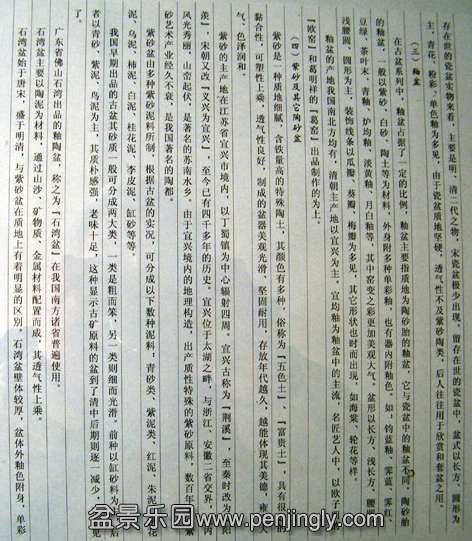 存在世的瓷盆实物来看，主要是明、清二代之物，宋瓷盆极少出现，留存在世的瓷盆中，盆式以长方、圆形为
主，青花、粉彩、单色釉为多见，由于瓷盆质地坚硬，透气性不及紫砂陶类，后人往往用于欣赏和套盆之用。
（三）釉盆
在古盆系列中，釉盆占据了一定的比例，釉盆主要指质地为陶砂胎的釉盆，它与瓷盆中的釉盆不同，陶砂胎
的釉盆，一般以紫砂、白砂、陶土等为材料，外身附多种单彩釉，也有器内附釉色。如，钧蓝釉、霁蓝、霁红、
豆绿、茶叶末、青釉、炉均釉、淡黄釉、月白釉等，其中窑变之彩更加美观大气。盆形以长方、浅长方、腰圆、
浅腰圆、圆形为主，装饰线条以瓜瓣、葵瓣、梅瓣为多见，其它形状也时而出现，如海棠、轮花等样，
釉盆的产地我国南北方均有，清朝主产地以宜兴为主，宜均釉为釉盆中的主流，名匠艺人中，以欧子明
『欧窑』和葛明样的『葛窑』出品制作的为上。
（四）紫砂及其它陶砂盆
紫砂是一种质地细腻、含铁量高的特殊陶土，其颜色有多种，俗称为『五色土』、『富贵土』，具有很强的
黏合性，可塑性上乘，透气性良好，制成的盆器美观光滑，坚固耐用，存放年代越久，越能体现其美德，雍容大
气、色泽润和
紫砂的主产地在江苏省宜兴市境内，以丁蜀镇为中心辐射四周，宜兴古称为『荆溪』，至秦时改为『阳
羡』，宋朝又改『义兴为宜兴』至今已有四千多年的历史。宜兴位于太湖之畔，与浙江、安徽二省交界，境内
风光秀丽，山峦起伏，是著名的苏南水乡。由于宜兴境内的地理构造，出产质性特殊的紫砂原料，数百年来紫
砂艺术产业经久不衰，是我国著名的陶都。
紫砂盆由多种紫砂泥料所制，根据古盆的实况，可分成以下数种泥料，青砂类、紫泥类、红泥、朱泥、梨花
泥、乌泥、柿泥、白泥、桂花泥、李皮泥、缸砂等等。
我国早期出品的古盆其砂质一般可分成两大类，一类是粗而笨，另一类则细而光滑。前种以缸砂料为主，后
者以青砂、紫泥、乌泥为主，其质朴感强，老味十足，这种显示古矿原料的盆到了清中后期则逐一减少，难见
了。
广东省佛山石湾出品的釉陶盆，称之为『石湾盆』在我国南方诸省普遍使用。
石湾盆主要以陶泥为材料，通过山沙、矿物质、金属材料配置而成，其透气性上乘。
石湾盆始于唐宋，盛于明清，与紫砂盆在质地上有着明显的区别。石湾盆壁体较厚，盆体外釉色附身，单彩
盆景乐园www.penjingly.com